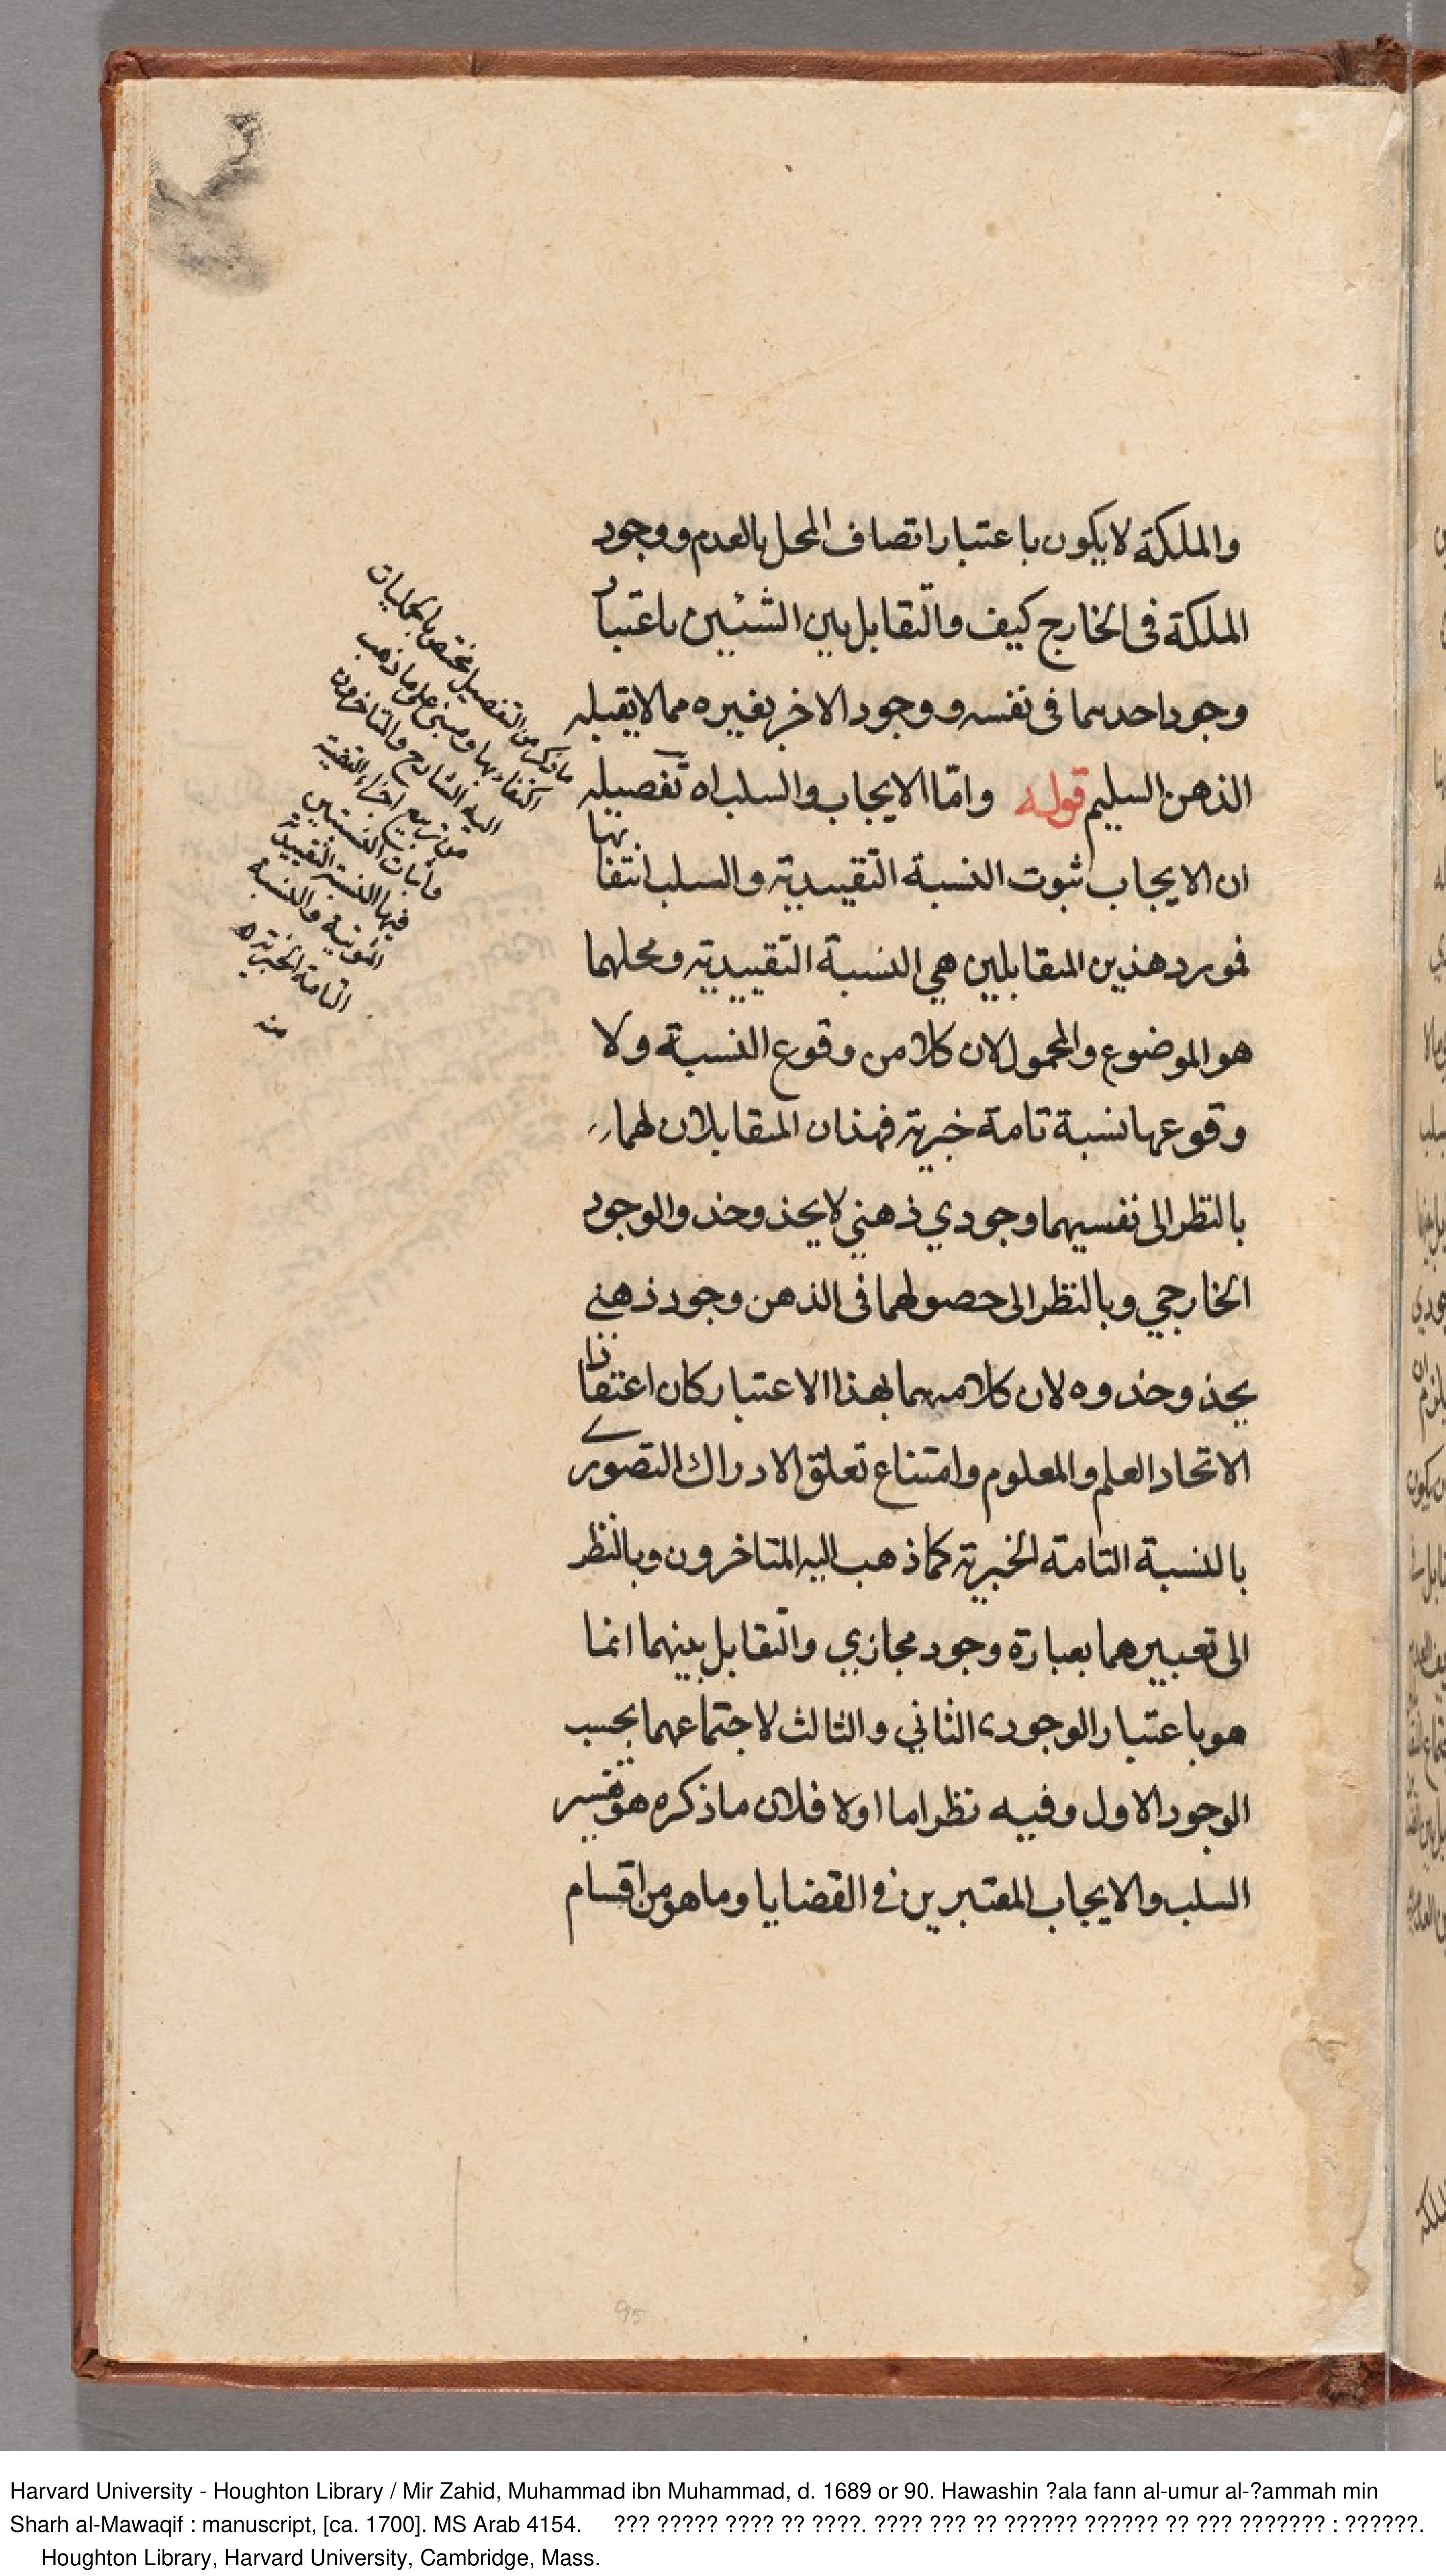 والملكة لا يكون باعتبار اتصاف المحل بالعدم ووجود
الملكة فى الخارج كيف والتقابل بين الشيئين باعتبار
وجود احدهما فى نفسه ووجود الاخر بغيره مما لا يقبله
الذهن السليم قوله وامّا الايجاب والسلب اه تفصيله
ان الايجاب ثبوت النسبة التقييدية والسلب انتفائها
فمورد هذين المتقابلين هي النسبة التقييدية ومحلهما
هو الموضوع والمحمول لان كلا من وقوع النسبة ولا
وقوعها نسبة تامة خبرية فهذان المتقابلان لهما
بالنظر الى نفسيهما وجودي ذهني لا يحذ وحذ والوجود
الخارجي وبالنظر الى حصولهما فى الذهن وجود ذهني
يحذ وحذوه لان كلا منهما بهذا الاعتبار كان اعتقادا
الاتحاد العلم والمعلوم وامتناع تعلق الادراك التصوري
بالنسبة التامة الخبرية كما ذهب اليه المتاخرون وبالنظر
الى تعبيرهما بعبارة وجود مجازي والتقابل بينهما انما
هو باعتبار الوجود الثاني والثالث لاجتماعهما بحسب
الوجود الاول وفيه نظر اما اولا فلان ما ذكره هو تفسير
السلب والايجاب المعتبرين في القضايا وما هو من اقسام
ما ذكر من التفصيل مختص بالحمليات
اكتفاء بها ومبنى على ما ذهب
اليه الشارح والمتاخرون
من تربيع اجزاء القضية
واثبات النسبتين
فيها النسبة التقييدية
الثبوتية والنسبة
التامة الخبرية ه
منه
95
Harvard University - Houghton Library / Mir Zahid, Muhammad ibn Muhammad, d. 1689 or 90. Hawashin ?ala fann al-umur al-?ammah min
Sharh al-Mawaqif : manuscript, [ca. 1700]. MS Arab 4154. ??? ????? ???? ?? ????. ???? ??? ?? ?????? ?????? ?? ??? ??????? : ??????.
Houghton Library, Harvard University, Cambridge, Mass.